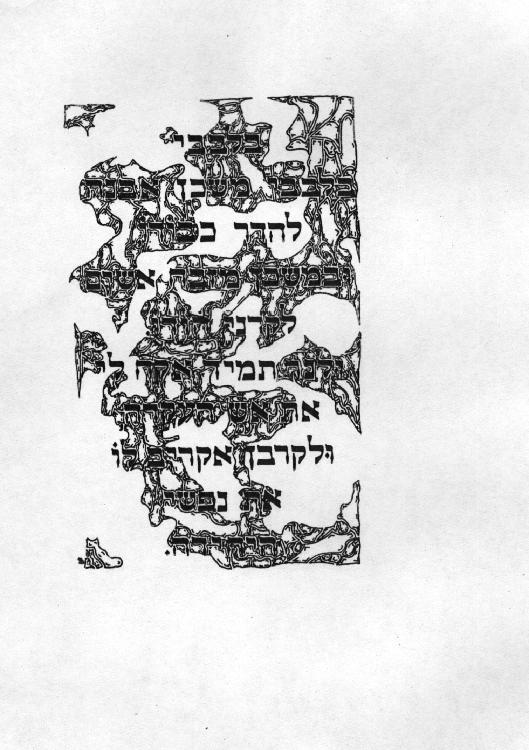 בלבבי
בלבבי משכן אבנה
להדר כבודו
ובמשכן מזבח אשים
לקרני הודו
ולנר תמיד אקח לי
את אש העקדה
ולקרבן אקריב לו
את נפשי
היחידה.